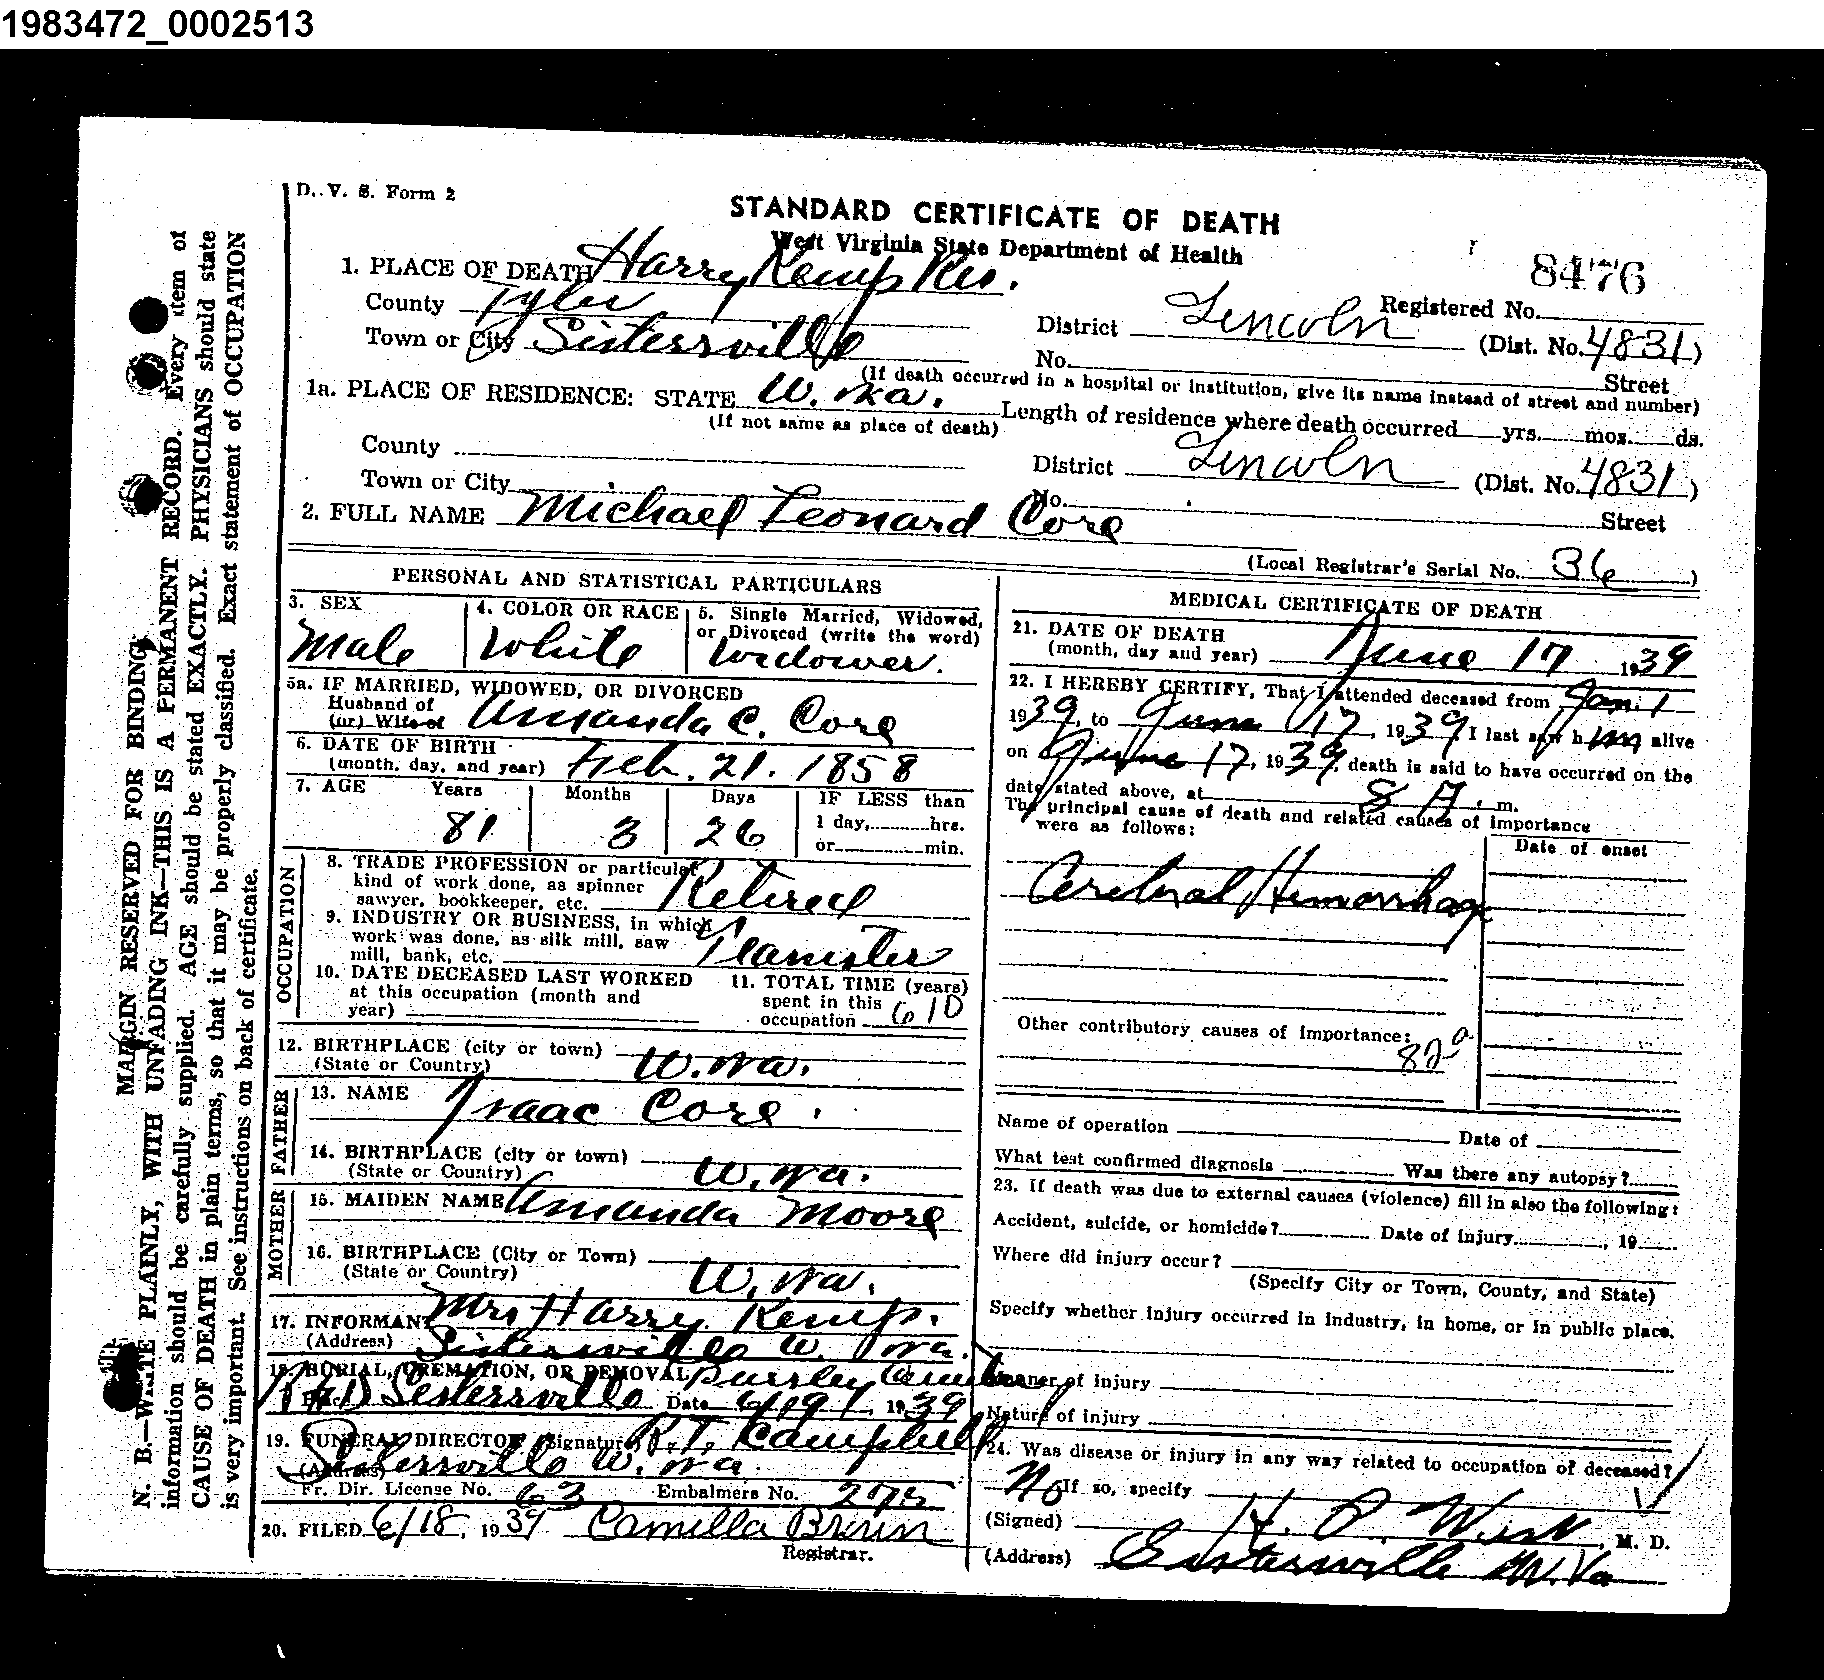 1983472_0002513
D. V. S. Form 2
STANDARD CERTIFICATE OF DEATH
West Virginia State Department of Health
8476
1. PLACE OF DEATH Harry Kemp Res.
County Tyler
District Lincoln
Registered No.
Town or City Sistersville
(Dist. No. 4831)
No. Street
(If death occurred in a hospital or institution, give its name instead of street and number)
1a. PLACE OF RESIDENCE: STATE W. Va.
(If not same as place of death)
Length of residence where death occurred yrs. mos. ds.
County
District Lincoln (Dist. No. 4831)
Town or City
No. Street
2. FULL NAME Michael Leonard Core
(Local Registrar's Serial No. 36)
PERSONAL AND STATISTICAL PARTICULARS
3. SEX
Male
4. COLOR OR RACE
White
5. Single Married, Widowed, or Divorced (write the word)
Widower.
5a. IF MARRIED, WIDOWED, OR DIVORCED
Husband of
(or) Wife of Amanda C. Core
6. DATE OF BIRTH
(month, day, and year) Feb. 21. 1858
7. AGE Years Months Days IF LESS than
81 3 26
1 day, hrs.
or min.
OCCUPATION
8. TRADE PROFESSION or particular
kind of work done, as spinner
sawyer, bookkeeper, etc. Retired
9. INDUSTRY OR BUSINESS, in which
work was done, as silk mill, saw
mill, bank, etc. Teamster
10. DATE DECEASED LAST WORKED
at this occupation (month and
year)
11. TOTAL TIME (years)
spent in this
occupation 610
12. BIRTHPLACE (city or town)
(State or Country) W. Va.
FATHER
13. NAME Isaac Core.
14. BIRTHPLACE (city or town)
(State or Country) W. Va.
MOTHER
15. MAIDEN NAME Amanda Moore
16. BIRTHPLACE (City or Town)
(State or Country) W. Va.
17. INFORMANT Mrs Harry Kemp.
(Address) Sistersville W. Va.
18. BURIAL, CREMATION, OR REMOVAL Pursley
Sistersville Date 6/19/, 1939
19. FUNERAL DIRECTOR (Signature) R. T. Campbell
(Address) Sistersville W. Va.
Fr. Dir. License No. 63 Embalmers No. 2775
20. FILED 6/18, 1939 Camilla Brown
Registrar.
MEDICAL CERTIFICATE OF DEATH
21. DATE OF DEATH
(month, day and year) June 17 1939
22. I HEREBY CERTIFY, That I attended deceased from Jan. 1
1939, to June 17, 1939 I last saw him alive
on June 17, 1939, death is said to have occurred on the
date stated above, at 8 A. m.
The principal cause of death and related causes of importance
were as follows:
Date of onset
Cerebral Hemorrhage
Other contributory causes of importance:
82a
Name of operation Date of
What test confirmed diagnosis Was there any autopsy?
23. If death was due to external causes (violence) fill in also the following:
Accident, suicide, or homicide? Date of injury, 19
Where did injury occur?
(Specify City or Town, County, and State)
Specify whether injury occurred in industry, in home, or in public place.
Manner of injury
Nature of injury
24. Was disease or injury in any way related to occupation of deceased?
No If so, specify
(Signed) H. P. West, M. D.
(Address) Sistersville W. Va
MARGIN RESERVED FOR BINDING
N. B.—WRITE PLAINLY, WITH UNFADING INK—THIS IS A PERMANENT RECORD. Every item of
information should be carefully supplied. AGE should be stated EXACTLY. PHYSICIANS should state
CAUSE OF DEATH in plain terms, so that it may be properly classified. Exact statement of OCCUPATION
is very important. See instructions on back of certificate.